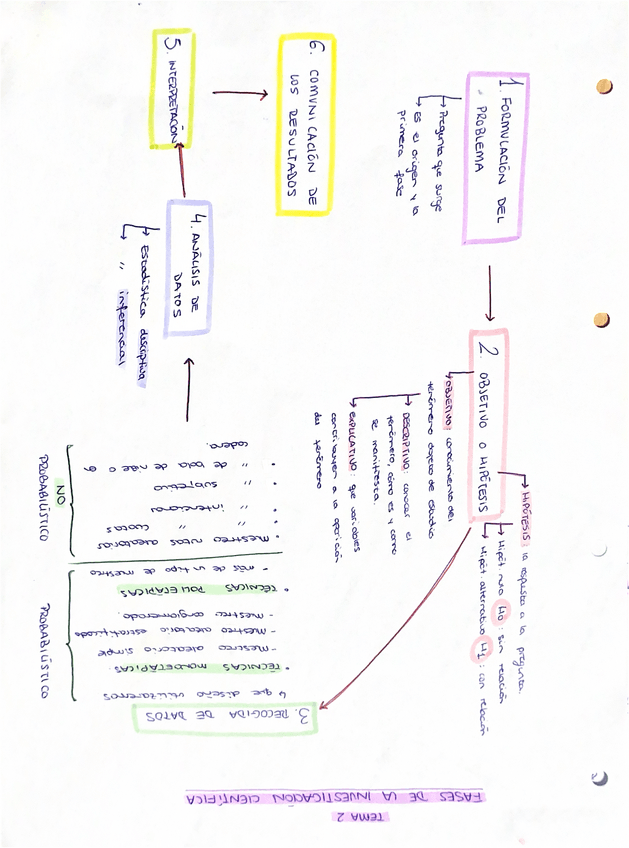 TEMA 2
FASES DE LA INVESTIGACIÓN CIENTÍFICA
1. FORMULACIÓN DEL
PROBLEMA
Pregunta que surge
es el origen y la
primera fase
2. OBJETIVO O HIPÓTESIS
HIPÓTESIS: la respuesta a la pregunta.
Hipót nula H0: sin relación
Hipót alternativa H1: con relación
OBJETIVO: conocimiento del
fenómeno objeto de estudio
DESCRIPTIVO: conocer el
fenómeno, cómo es y como
se manifiesta.
EXPLICATIVO: que variables
contribuyen a la aparición
del fenómeno
3. RECOGIDA DE DATOS
↳ que diseño utilizaremos
• TÉCNICAS MONOETÁPICAS.
- Muestreo aleatorio simple
- Muestreo aleatorio estratificado
- Muestreo conglomerado.
• TÉCNICAS POLIETÁPICAS
- más de un tipo de muestreo
PROBABILÍSTICO
• Muestreo rutas aleatorias
• " cuotas
• " intencional
• " subjetivo
• " de bola de nieve o en
cadena.
NO
PROBABILÍSTICO
4. ANÁLISIS DE
DATOS
Estadística discriptiva
" inferencial
5. INTERPRETACIÓN
6. COMUNICACIÓN DE
LOS RESULTADOS